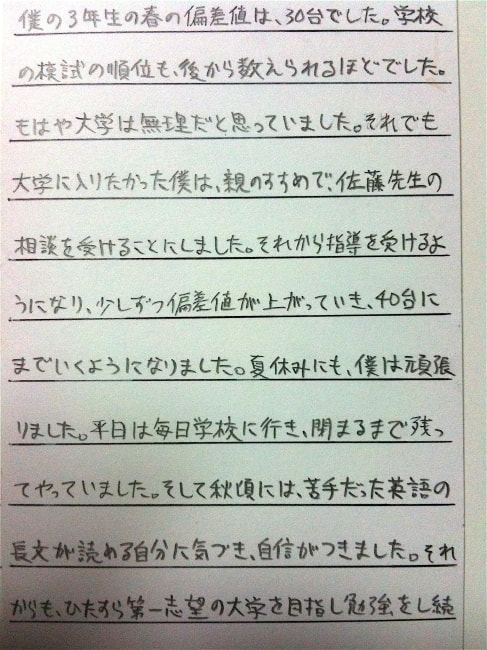 僕の3年生の春の偏差値は、30台でした。学校
の模試の順位も、後から数えられるほどでした。
もはや大学は無理だと思っていました。それでも
大学に入りたかった僕は、親のすすめで、佐藤先生の
相談を受けることにしました。それから指導を受けるよ
うになり、少しずつ偏差値が上がっていき、40台に
までいくようになりました。夏休みにも、僕は頑張
りました。平日は毎日学校に行き、閉まるまで残っ
てやっていました。そして秋頃には、苦手だった英語の
長文が読める自分に気づき、自信がつきました。それ
からも、ひたすら第一志望の大学を目指し勉強をし続